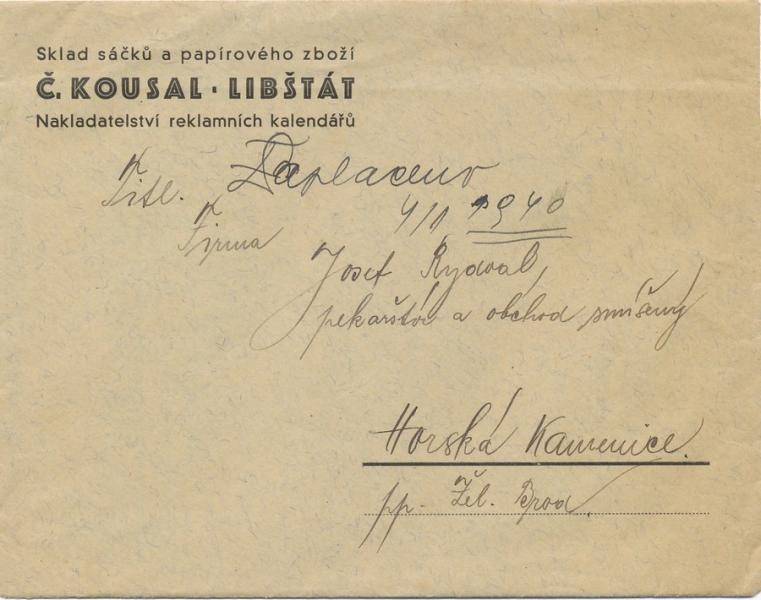 Sklad sáčků a papírového zboží
Č. KOUSAL · LIBŠTÁT
Nakladatelství reklamních kalendářů
Titl. Zaplaceno
4/1 1940
Firma
Josef Rydval,
pekařství a obchod smíšený
Horská Kamenice.
pp. Žel. Brod.